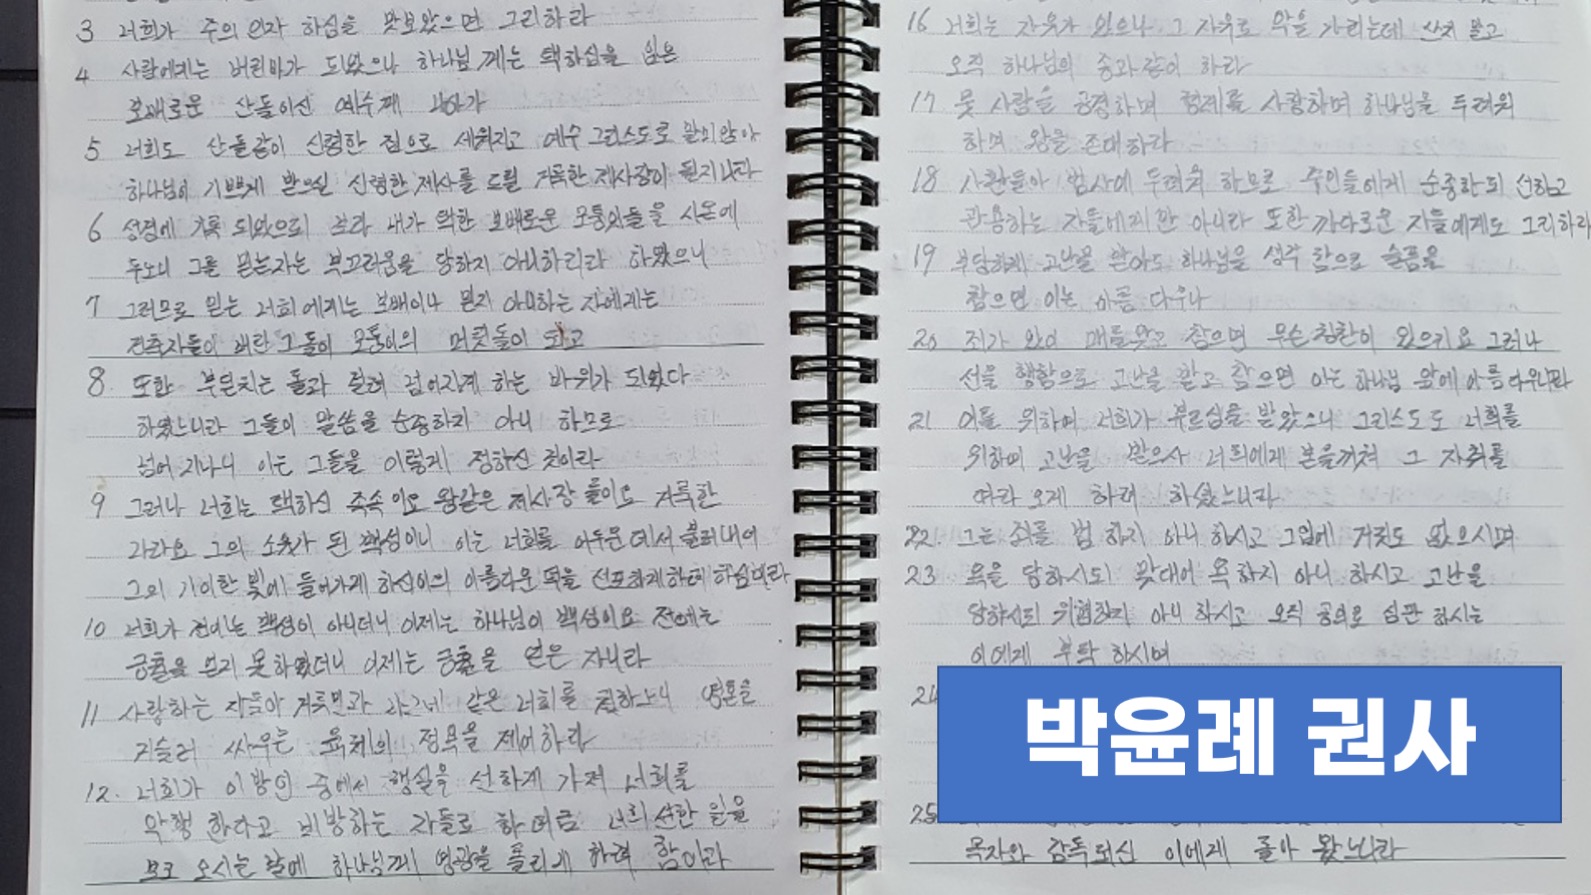 3 너희가 주의 인자 하심을 맛보았으면 그리하라
4 사람에게는 버린바가 되었으나 하나님 께는 택하심을 입은
보배로운 산돌이신 예수께 나아가
5 너희도 산돌같이 신령한 집으로 세워지고 예수 그리스도로 말미암아
하나님이 기쁘게 받으실 신령한 제사를 드릴 거룩한 제사장이 될지니라
6 성경에 기록 되었으되 보라 내가 택한 보배로운 모퉁잇돌을 시온에
두노니 그를 믿는자는 부끄러움을 당하지 아니하리라 하였으니
7 그러므로 믿는 너희에게는 보배이나 믿지 아니하는 자에게는
건축자들이 버린 그 돌이 모퉁이의 머릿돌이 되고
8. 또한 부딪치는 돌과 걸려 넘어지게 하는 바위가 되었다
하였느니라 그들이 말씀을 순종하지 아니 하므로
넘어지나니 이는 그들을 이렇게 정하신 것이라
9 그러나 너희는 택하신 족속이요 왕같은 제사장 들이요 거룩한
나라요 그의 소유가 된 백성이니 이는 너희를 어두운데서 불러내어
그의 기이한 빛에 들어가게 하신이의 아름다운 덕을 선포하게하려 하심이라
10 너희가 전에는 백성이 아니더니 이제는 하나님이 백성이요 전에는
긍휼을 얻지 못하였더니 이제는 긍휼을 얻은 자니라
11 사랑하는 자들아 거룩민과 나그네 같은 너희를 권하노니 영혼을
거슬러 싸우는 육체의 정욕을 제어하라
12. 너희가 이방인 중에서 행실을 선하게 가져 너희를
악행 한다고 비방하는 자들로 하여금 너희 선한 일을
보고 오시는 날에 하나님께 영광을 돌리게 하려 함이라
16 너희는 자유가 있으나 그 자유로 악을 가리는데 쓰지 말고
오직 하나님의 종과같이 하라
17 뭇 사람을 공경하며 형제를 사랑하며 하나님을 두려워
하며 왕을 존대하라
18 사환들아 범사에 두려워 하므로 주인들에게 순종하되 선하고
관용하는 자들에게만 아니라 또한 까다로운 자들에게도 그리하라
19 부당하게 고난을 받아도 하나님을 생각 함으로 슬픔을
참으면 이는 아름 다우나
20 죄가 있어 매를맞고 참으면 무슨칭찬이 있으리요 그러나
선을 행함으로 고난을 받고 참으면 이는 하나님 앞에 아름다우니라
21 이를 위하여 너희가 부르심을 받았으니 그리스도도 너희를
위하여 고난을 받으사 너희에게 본을끼쳐 그 자취를
따라 오게 하려 하셨느니라
22. 그는 죄를 범 하지 아니 하시고 그입에 거짓도 없으시며
23 욕을 당하시되 맞대어 욕하지 아니 하시고 고난을
당하시되 위협하지 아니 하시고 오직 공의로 심판 하시는
이에게 부탁 하시며
24
박윤례 권사
25
목자와 감독되신 이에게 돌아 왔느니라